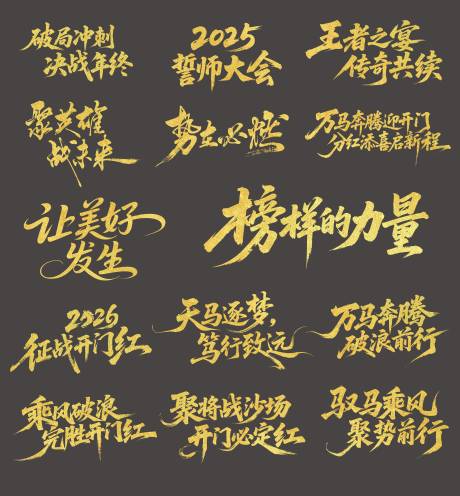 破局冲刺
决战年终
2025
誓师大会
王者之宴
传奇共续
聚英雄
战未来
势在必燃
万马奔腾迎开门
分红添喜启新程
让美好
发生
榜样的力量
2026
征战开门红
天马逐梦，
笃行致远
万马奔腾
破浪前行
乘风破浪
完胜开门红
聚将战沙场
开门必定红
驭马乘风
聚势前行